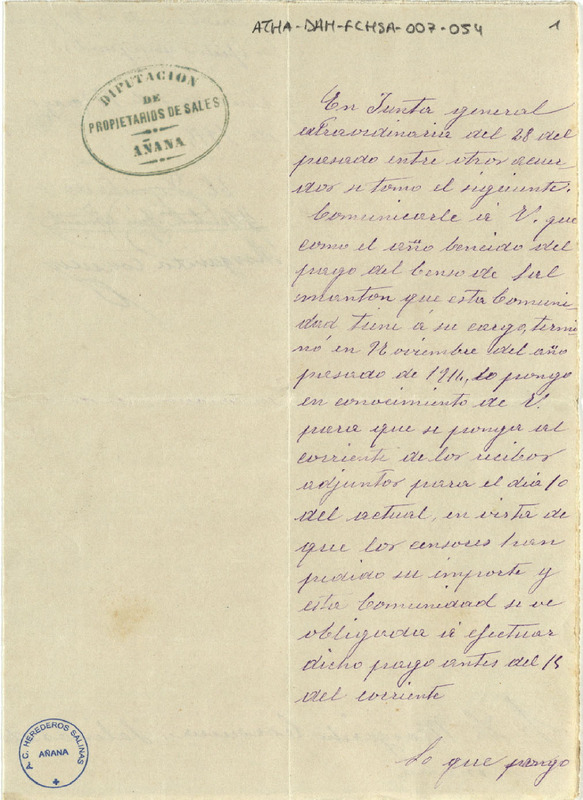 ATHA-DAH-FCHSA-007-054
1
DIPUTACION
DE
PROPIETARIOS DE SALES
AÑANA
En Junta general
extraordinaria del 28 del
pasado entre otros acuer-
dos se tomo el siguiente.
Comunicarle á V. que
como el año bencido del
pago del Censo de Sal
manton que esta Comuni-
dad tiene á su cargo, termi
nó en Noviembre del año
pasado de 1914, lo pongo
en conocimiento de V.
para que se ponga al
corriente de los recibos
adjuntos para el dia 10
del actual, en vista de
que los censores han
pedido su importe y
esta Comunidad se ve
obligada á efectuar
dicho pago antes del 15
del corriente
Lo que pongo
C. HEREDEROS SALINAS
AÑANA